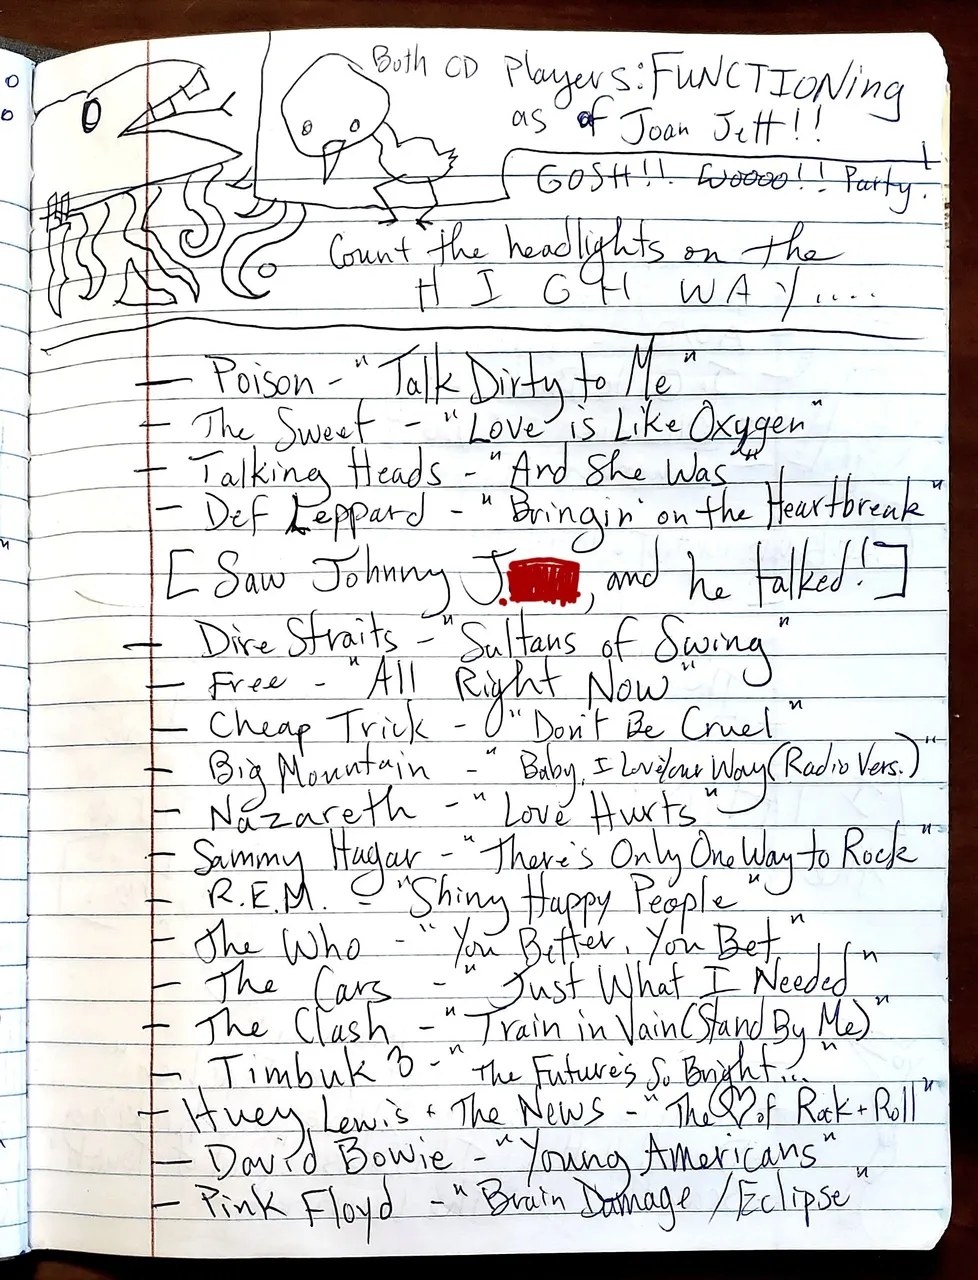 Both CD Players: FUNCTIONing
as of Joan Jett!!
GOSH!! Woooo!! Party!
Count the headlights on the
HIGHWAY....
— Poison - "Talk Dirty to Me"
- The Sweet - "Love is Like Oxygen"
- Talking Heads - "And She Was"
- Def Leppard - "Bringin' on the Heartbreak"
[Saw Johnny J. , and he talked!]
- Dire Straits - "Sultans of Swing"
- Free - "All Right Now"
- Cheap Trick - "Don't Be Cruel"
- Big Mountain - "Baby, I Love Your Way (Radio Vers.)"
- Nazareth - "Love Hurts"
- Sammy Hagar - "There's Only One Way to Rock"
- R.E.M. - "Shiny Happy People"
- The Who - "You Better, You Bet"
- The Cars - "Just What I Needed"
- The Clash - "Train in Vain (Stand By Me)"
- Timbuk 3 - "The Future's So Bright..."
- Huey Lewis + The News - "The ♡ of Rock + Roll"
- David Bowie - "Young Americans"
- Pink Floyd - "Brain Damage / Eclipse"